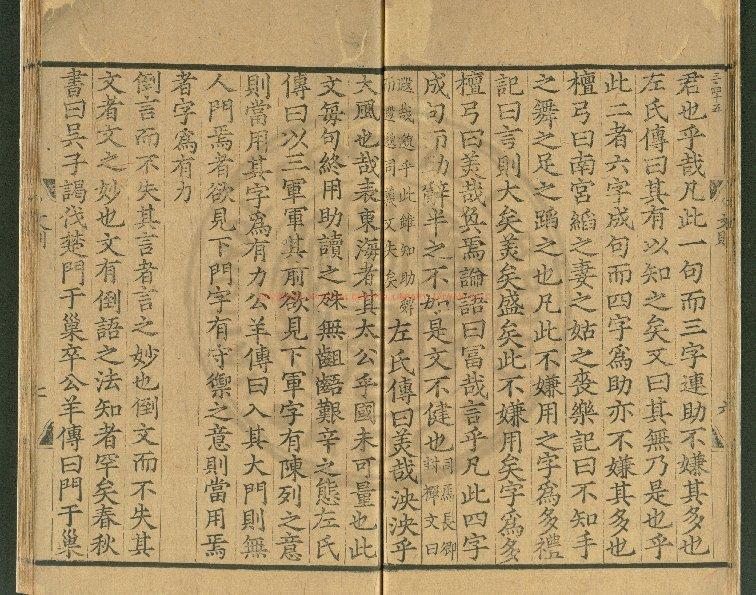 君也乎哉凡此一句而三字連助不嫌其多也
左氏傳曰其有以知之矣又曰其無乃是也乎
此二者六字成句而四字爲助亦不嫌其多也
檀弓曰南宮縚之妻之姑之喪樂記曰不知手
之舞之足之蹈之也凡此不嫌用之字爲多禮
記曰言則大矣美矣盛矣此不嫌用矣字爲多
檀弓曰美哉奐焉論語曰冨哉言乎凡此四字
成句而助辭半之不如是文不健也司馬長卿封禪文曰
遐哉邈乎此雖知助辭而遐邈同義又失矣左氏傳曰美哉泱泱乎
大風也哉表東海者其太公乎國未可量也此
文每句終用助讀之殊無齟齬艱辛之態左氏
傳曰以三軍軍其前欲見下軍字有陳列之意
則當用其字爲有力公羊傳曰入其大門則無
人門焉者欲見下門字有守禦之意則當用焉
者字爲有力
倒言而不失其言者言之妙也倒文而不失其
文者文之妙也文有倒語之法知者罕矣春秋
書曰吳子謁伐楚門于巢卒公羊傳曰門于巢